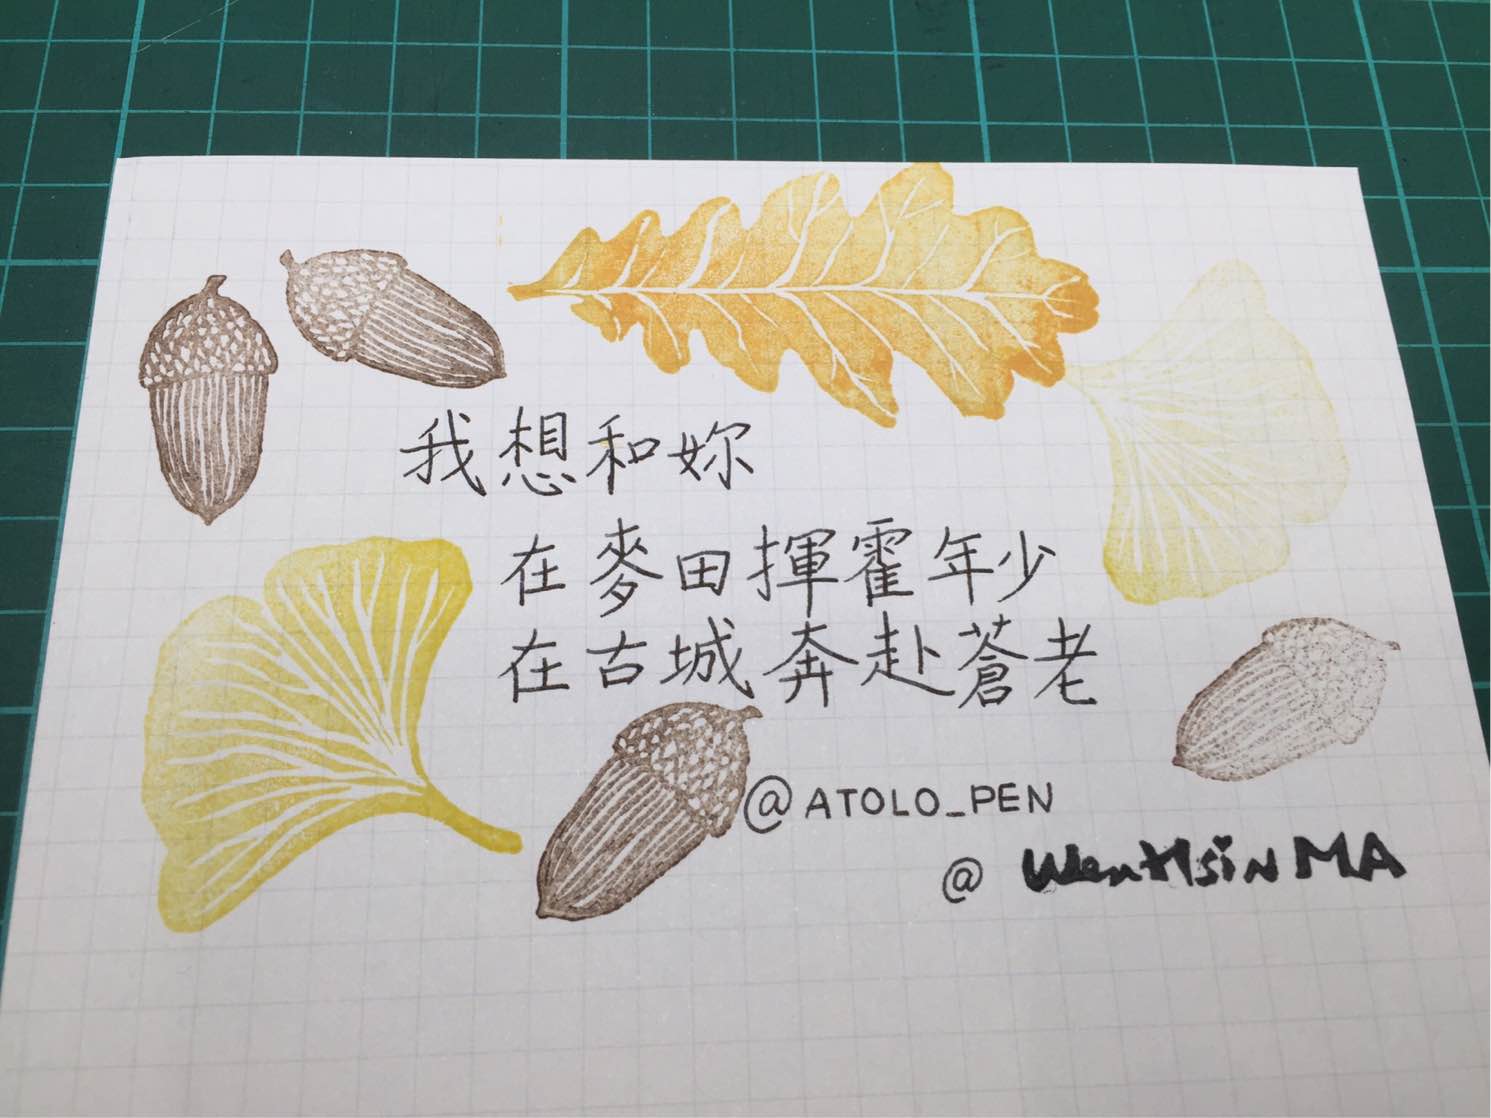 我想和妳
在麥田揮霍年少
在古城奔赴蒼老
@ATOLO_PEN
@ WenHsiN MA